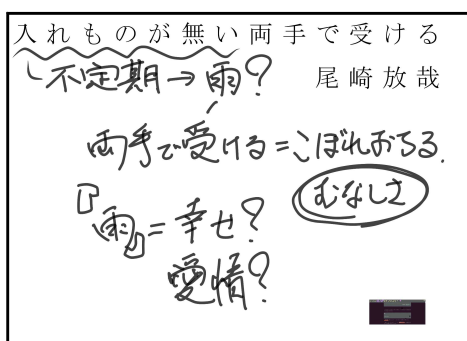 入れものが無い両手で受ける
尾崎放哉
不定期→雨?
両手で受ける=こぼれおちる.
むなしさ
『雨』=幸せ?
愛情?